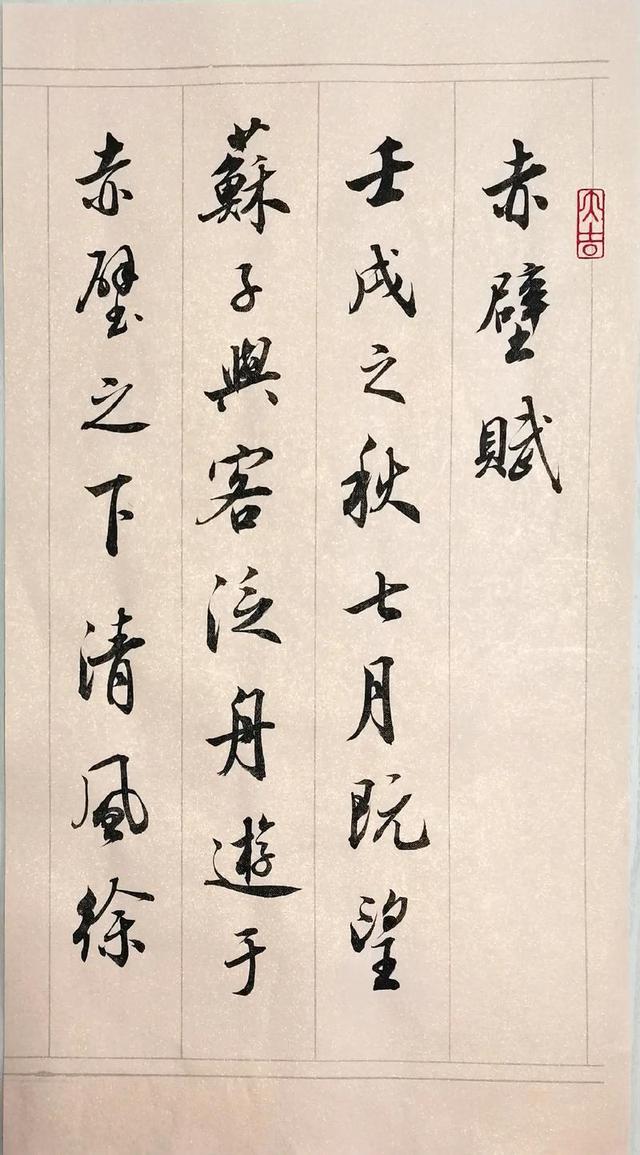 大吉
赤壁賦
壬戌之秋七月既望
蘇子與客泛舟遊于
赤壁之下清風徐